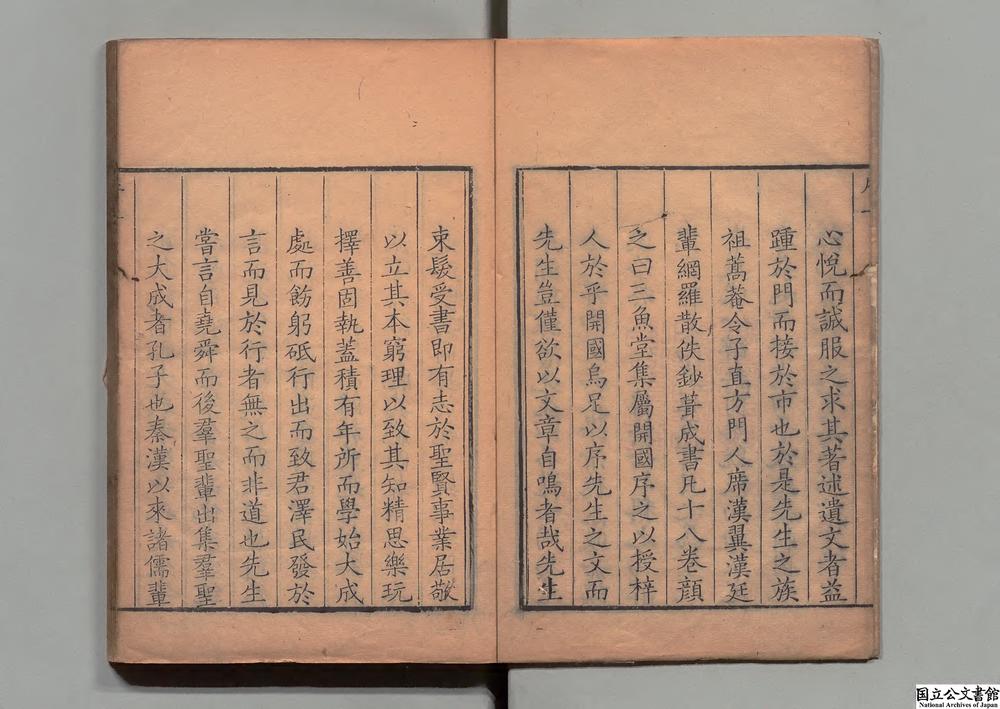 心悅而誠服之求其著述遺文者益
踵於門而接於市也於是先生之族
祖蒿菴令子直方門人席漢翼漢廷
輩網羅散佚鈔葺成書凡十八卷顔
之曰三魚堂集屬開國序之以授梓
人於乎開國烏足以序先生之文而
先生豈僅欲以文章自鳴者哉先生
束髮受書即有志於聖賢事業居敬
以立其本窮理以致其知精思樂玩
擇善固執蓋積有年所而學始大成
處而飭躬砥行出而致君澤民發於
言而見於行者無之而非道也先生
嘗言自堯舜而後羣聖輩出集羣聖
之大成者孔子也秦漢以來諸儒輩
国立公文書館
National Archives of Japan